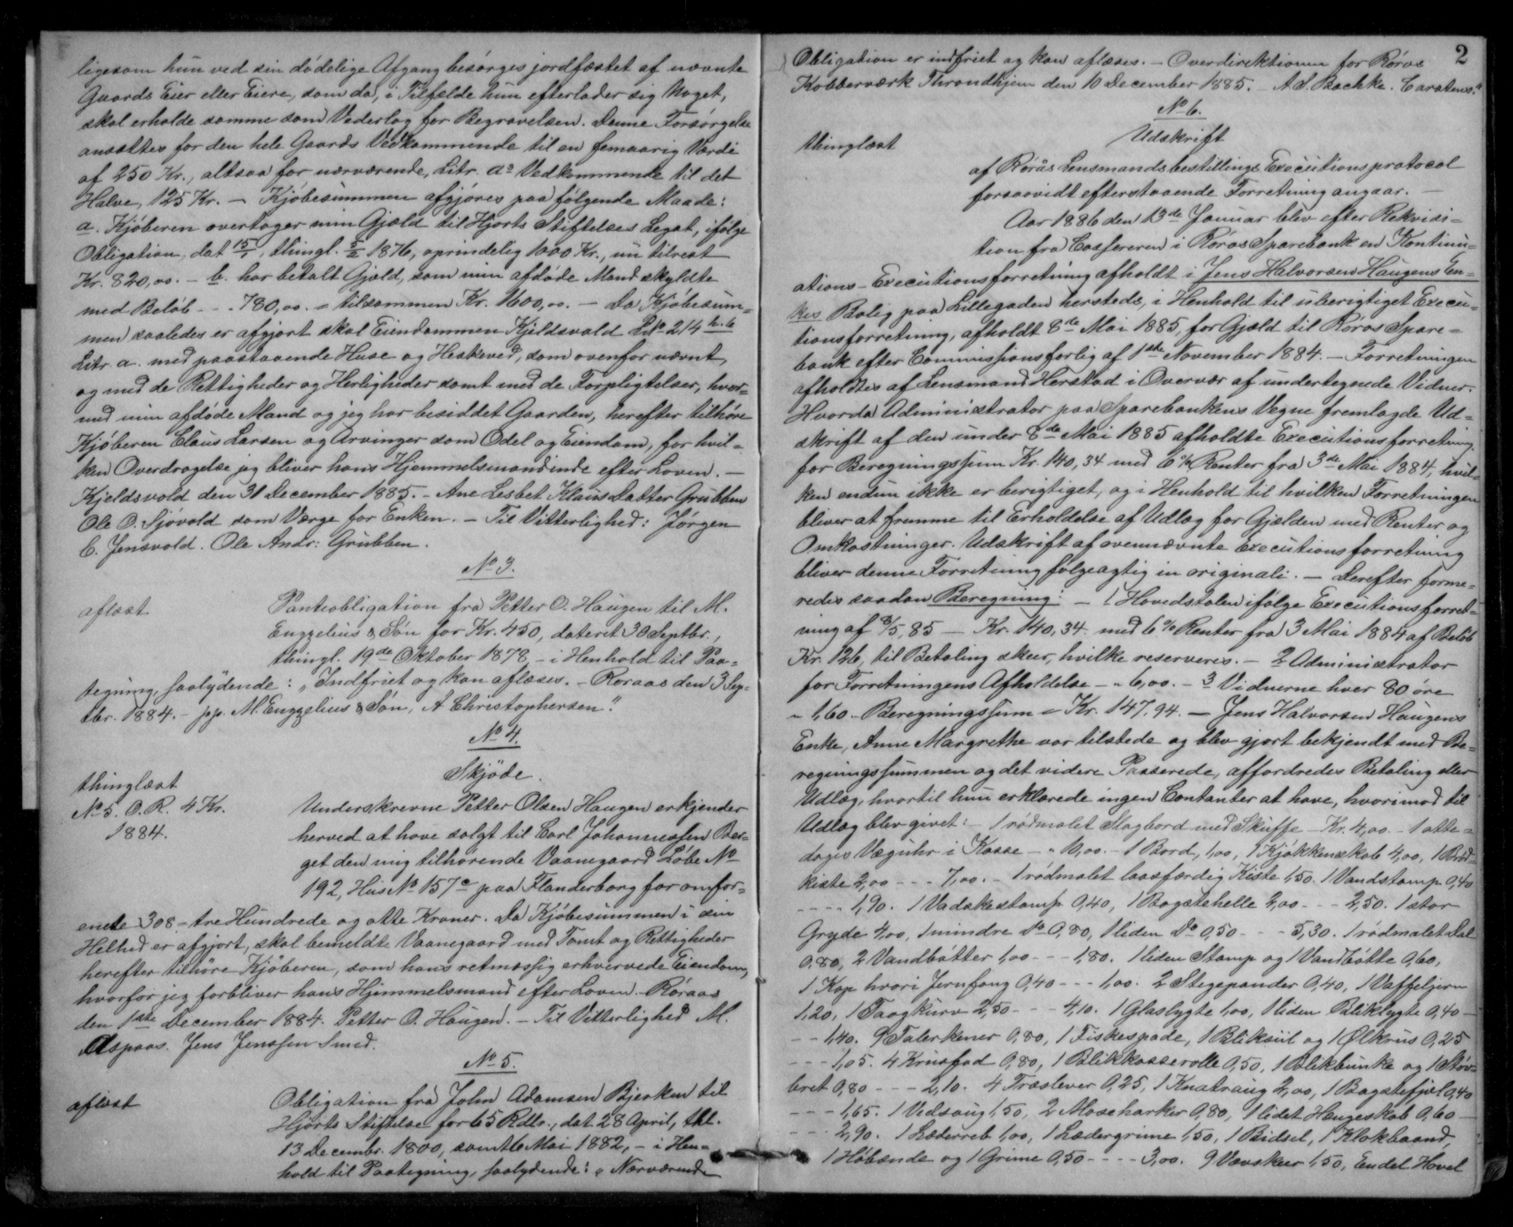 ligesom hun ved sin dödelige Afgang besörges jordfæstet af nævnte
Gaards Eier eller Eiere, som da, i Tilfælde hun efterlader sig Noget,
skal erholde samme som Vederlag for Begravelsen. Denne Forsörgelse
ansættes for den hele Gaards Vedkommende til en femaarig Værdi
af 250 Kr., altsaa for nærværende, Litr. a's Vedkommende til det
Halve, 125 Kr. — Kjöbesummen afgjöres paa følgende Maade:
a. Kjöberen overtager min Gjæld til Hjorts Stiftelses Legat, ifölge
Obligation, dat 15/1, thingl. 5/2 1876, oprindelig 1000 Kr., nu tilrest
Kr. 820,00. — b. har betalt Gjæld, som min afdöde Mand skyldte
med Belöb - - . 780,00. = tilsammen Kr. 1600,00. — Da Kjöbesum-
men saaledes er afgjort skal Eiendommen Kjeldsvold Lb. 214 h. b
Litr a. med paastaaende Huse og Heskeved, som ovenfor nævnt,
og med de Rettigheder og Herligheder samt med de Forpligtelser, hvor-
med min afdöde Mand og jeg har besiddet Gaarden, herefter tilhöre
Kjöberen Claus Larsen og Arvinger som Odel og Eiendom, for hvil-
ken Overdragelse jeg bliver hans Hjemmelsmandinde efter Loven. —
Kjeldsvold den 31 December 1885. - Ane Lesbet Klaus Datter Grubben
Ole O. Sjövold som Værge for Enken. — Til Vitterlighed: Jörgen
C. Jensvold. Ole Andr: Grubben.
No 3.
aflæst
Panteobligation fra Petter O. Haugen til M.
Enggelius & Sön for Kr. 450, dateret 30 Septbr.,
thingl. 19de Oktober 1878, - i Henhold til Paa-
tegning saalydende: „Indfriet og kan aflæses. - Roraas den 3 Sep-
tbr. 1884. - pp. M. Enggelius & Sön, A Christophersen".
No 4.
thinglæst
Skjöde.
No 5. O. R. 4 Kr.
1884.
Underskrevne Petter Olsen Haugen erkjender
herved at have solgt til Carl Johannessen Ber-
get den mig tilhörende Vaanegaard Löbe No
192, Hus No 157a paa Flanderborg for omfor-
enede 308 - tre Hundrede og otte Kroner. Da Kjöbesummen i sin
Helhed er afgjort, skal bemeldte Vaanegaard med Tomt og Rettigheder
herefter tilhöre Kjöberen, som hans retmæssig erhvervede Eiendom,
hvorfor jeg forbliver hans Hjemmelsmand efter Loven. Röraas
den 1ste December 1884. Petter O. Haugen. - Til Vitterlighed M.
Aspaas. Jens Jenssen Smed.
No 5.
aflæst
Obligation fra John Adamsen Bjerken til
Hjorts Stiftelse for 65 Rdlr., dat. 28 April, thl.
13 Decembr. 1800, samt 16 Mai 1882, - i Hen-
hold til Paategning, saalydende: „Nærværende
2
Obligation er indfriet og kan aflæses. - Overdirektionen for Röros
Kobberværk Throndhjem den 10 December 1885. - A. S. Bachke. Carstens."
No 6.
thinglæst
Udskrift
af Rörås Lensmandsbestillings Executionsprotocol
forsaavidt efterstaaende Forretning angaar. —
Aar 1886 den 13de Januar blev efter Rekvisi-
tion fra Cassereren i Röros Sparebank en Kontinu-
ations-Executionsforretning afholdt i Jens Halvorsen Haugens En-
kes Bolig paa Lillegaden hersteds, i Henhold til uberigtiget Execu-
tionsforretning, afholdt 8de Mai 1885, for Gjæld til Röros Spare-
bank efter Commissionsforlig af 1ste November 1884. — Forretningen
afholdtes af Lensmand Herstad i Overvær af undertegnede Vidner.
Hvorda Administrator paa Sparebankens Vegne fremlagde Ud-
skrift af den under 8de Mai 1885 afholdte Executionsforretning
for Beregningssum Kr. 140,34 med 6 % Renter fra 3die Mai 1884, hvil-
ken endnu ikke er berigtiget, og i Henhold til hvilken Forretningen
bliver at fremme til Erholdelse af Udlæg for Gjælden med Renter og
Omkostninger. Udskrift af ovennævnte Executionsforretning
bliver denne Forretning fölgeagtig in originali. — Derefter forme-
redes saadan Beregning: — 1 Hovedstolen ifölge Executionsforret-
ning af 8/5,85 — Kr. 140,34 med 6 % Renter fra 3 Mai 1884 af Belöb
Kr. 126, til Betaling skeer, hvilke reserveres. - 2 Administrator
for Forretningens Afholdelse - „ 6,00. - 3 Vidnerne hver 80 öre
„ 1,60 - Beregningssum = Kr. 147.94. — Jens Halvorsen Haugens
Enke, Anne Margrethe var tilstede og blev gjort bekjendt med Be-
regningssummen og det videre Passerede, affordredes Betaling eller
Udlæg, hvortil hun erklærede ingen Contanter at have, hvorimod til
Udlæg blev givet: - 1 rödmalet Slagbord med Skuffe - Kr. 4,00 - 1 otte-
dages Væguhr i Kasse - „ 10,00 - 1 Bord, 1,00, 1 Kjökkenskab 4,00, 1 Bröd-
kiste 2,00 - - - 7,00. - 1 rödmalet laasfærdig Kiste 1,50. 1 Vandstamp 0,40
- - - - 1,90. 1 Vadskestamp 0,40, 1 Bagstehelle 2,00 - - - 2,50. 1 stor
Gryde 4,00, 1 mindre do 0,80, 1 liden Do 0,50 - - - 5,30. 1 rödmalet Dal
0,80, 2 Vandbötter 1,00 - - - 1,80. 1 liden Stamp og 1 Vandbötte 0,60,
1 Kop hvori Jernfang 0,40 - - - 1,00. 2 Stegepander 0,40, 1 Vaffeljern
1,20, 1 Taagkurv 2,50 - - - 4,10. 1 Glaslygte 1,00, 1 liden Bliklygte 0,40 -
- - 1,40. 9 Talerkener 0,80, 1 Fiskespade, 1 Bliksiil og 1 Ölkrus 0,25
- - - 1,05. 4 Krusfad 0,80, 1 Blikkasserolle 0,50, 1 Blikbunke og 1 Stöv-
bret 0,80 - - - 2,10. 4 Træslever 0,25, 1 Knatraug 2,00, 1 Bagstefjæl 0,40
- - - 1,65. 1 Vedsaug 1,50, 2 Moseharker 0,80, 1 lidet Hængeskab 0,60 -
- - - 2,90. 1 Læderreb 1,00, 1 Lædergrime 1,50, 1 Bidsel, 1 Klokbaand,
1 Höbænde og 1 Grime 0,50 - - - - 3,00. 9 Vævskeer 1,50, Endel Hovel